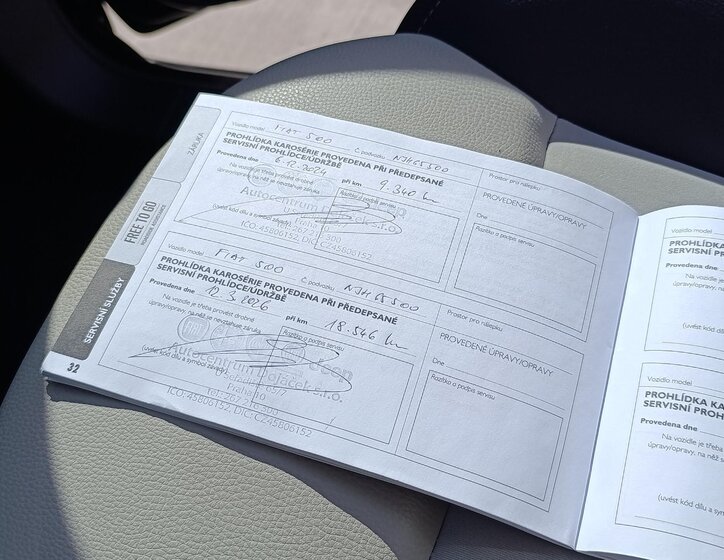 ZÁRUKA
FREE TO GO
SERVISNÍ SLUŽBY
32
Vozidlo model FIAT 500 č. podvozku NJ465500
PROHLÍDKA KAROSÉRIE PROVEDENA PŘI PŘEDEPSANÉ
SERVISNÍ PROHLÍDCE/ÚDRŽBĚ
Provedena dne 6.12.2024 při km 9.340 km
Na vozidle je třeba provést drobné
úpravy/opravy, na něž se nevztahuje záruka
Razítko a podpis servisu
(uvést kód dílu a symbol závady)
Autocentrum
Praha 10
ICO: 45806152, DIC: CZ45806152
Prostor pro nálepku
PROVEDENÉ ÚPRAVY/OPRAVY
Dne
Razítko a podpis servisu
Vozidlo model FIAT 500 č. podvozku NJ465500
PROHLÍDKA KAROSÉRIE PROVEDENA PŘI PŘEDEPSANÉ
SERVISNÍ PROHLÍDCE/ÚDRŽBĚ
Provedena dne 12.3.2026 při km 18.546 km
Na vozidle je třeba provést drobné
úpravy/opravy, na něž se nevztahuje záruka
Razítko a podpis servisu
(uvést kód dílu a symbol závady)
Autocentrum
Praha 10
ICO: 45806152, DIC: CZ45806152
Prostor pro nálepku
PROVEDENÉ ÚPRAVY/OPRAVY
Dne
Razítko a podpis servisu
Vozidlo model
PROHLÍDKA
SERVISNÍ PROHL
Provedena dne
Na vozidle je třeba
úpravy/opravy, na něž
(uvést kód dílu
Vozidlo model
PROHLÍDKA KARO
SERVISNÍ PROH
Provedena dne
Na vozidle je třeba
úpravy/opravy, na něž s
(uvést kód dílu a sym